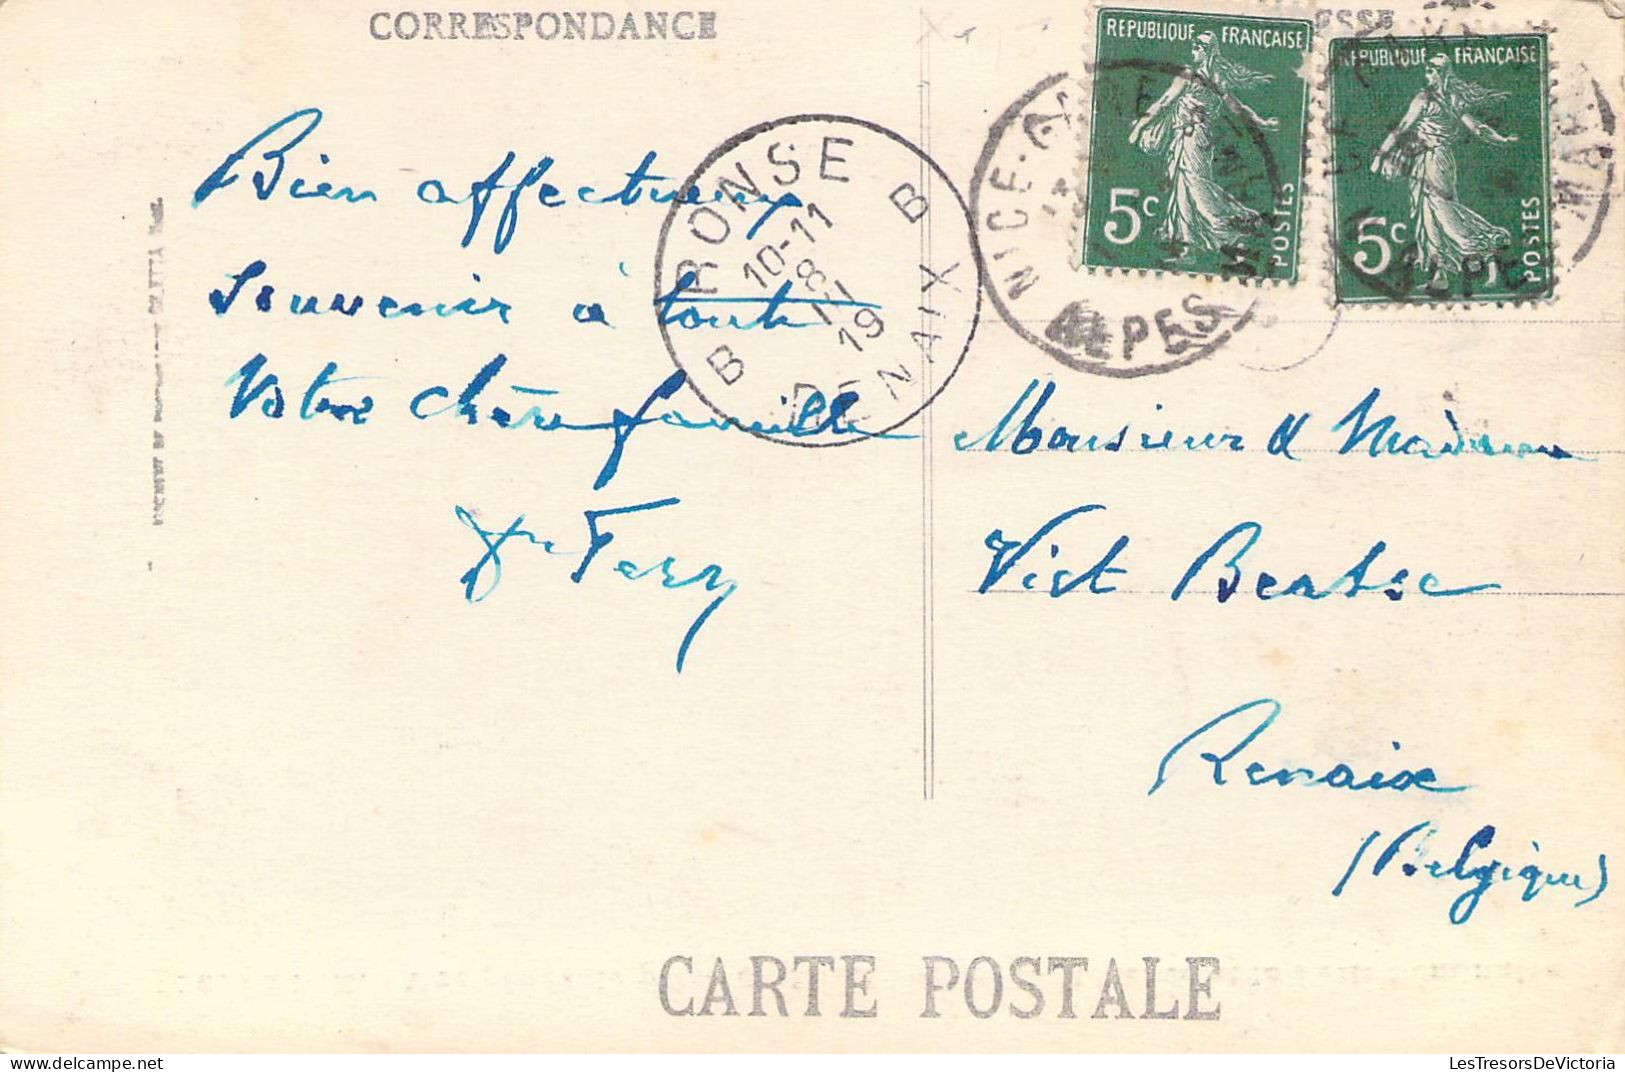 CORRESPONDANCE
REPUBLIQUE FRANÇAISE
5c
POSTES
REPUBLIQUE FRANÇAISE
5c
POSTES
NICE
ALPES
RONSE B
10-11
8
19
B RENAIX
Bien affectueux
souvenir à toute
Votre chère famille
Monsieur & Madame
Vict
Renaix
(Belgique)
CARTE POSTALE
LesTresorsDeVictoria